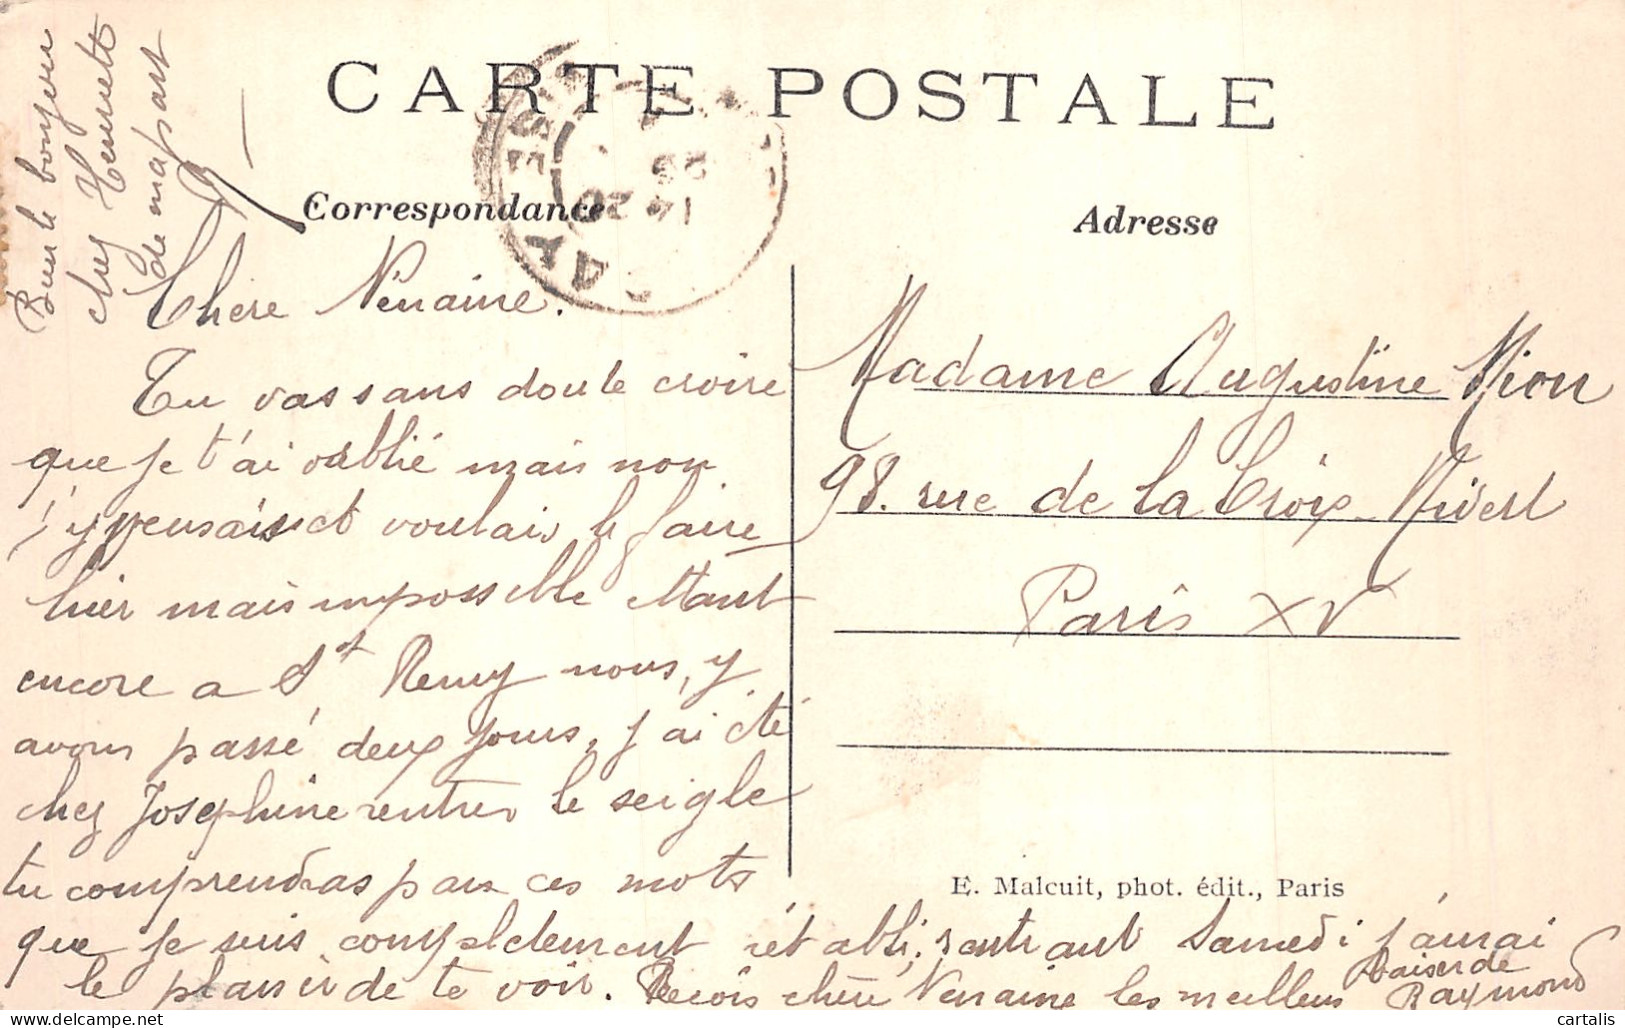 CARTE POSTALE
Correspondance
Adresse
Bien le bonjour
chez Henriette
de ma part
Chère Nénaine.
Tu vas sans doute croire
que je t'ai oublié mais non
j'y pensais et voulais le faire
hier mais impossible étant
encore a St Remy nous, y
avons passé deux jours, j'ai été
chez Josephine rentrer le seigle
tu comprendras par ces mots
que je suis complètement rétabli, rentrant Samedi j'aurai
le plaisir de te voir. Reçois chère Nénaine les meilleurs baiser de
Raymond
Madame Augustine Mion
98. rue de la Croix Nivert
Paris XV
E. Malcuit, phot. édit., Paris
cartalis
www.delcampe.net